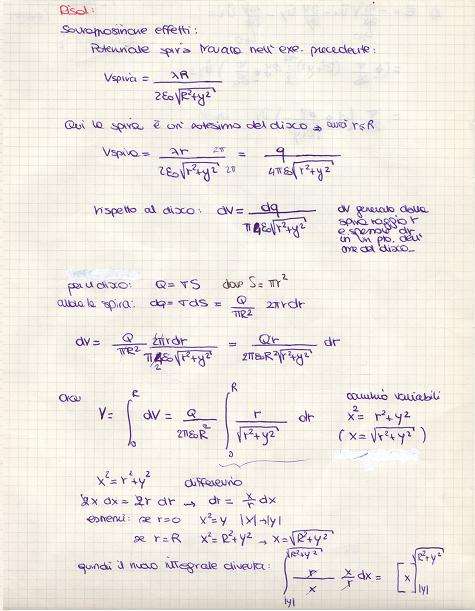 Risol:
Sovrapposizione effetti:
Potenziale spira trovato nell'exe. precedente:
Vspira = λR / 2ε₀√(R²+y²)
Qui la spira è un' -esimo del disco ⇒ avrà r≤R
Vspira = λr / 2ε₀√(r²+y²) 2π/2π = q / 4πε₀√(r²+y²)
rispetto al disco: dV = dq / π4ε₀√(r²+y²)
dV generato dalla
spira raggio r
e spessore dr
in un pto. dell'
asse del disco.
per il disco: Q = σS dove S = πr²
allora la spira: dq = σdS = Q/πR² 2πrdr
dV = Q/πR² 2πrdr / π4ε₀√(r²+y²) = Qr / 2πε₀R²√(r²+y²) dr
ora V = ∫₀ᴿ dV = Q / 2πε₀R² ∫₀ᴿ r / √(r²+y²) dr
cambio variabili
x² = r²+y²
(x = √(r²+y²))
x² = r²+y² differenzio
2x dx = 2r dr → dr = x/r dx
estremi: se r=0 x²=y |x|→|y|
se r=R x²=R²+y² → x=√(R²+y²)
quindi il nuovo integrale diventa: ∫_|y|^√(R²+y²) r/x x/r dx = [x]_|y|^√(R²+y²)